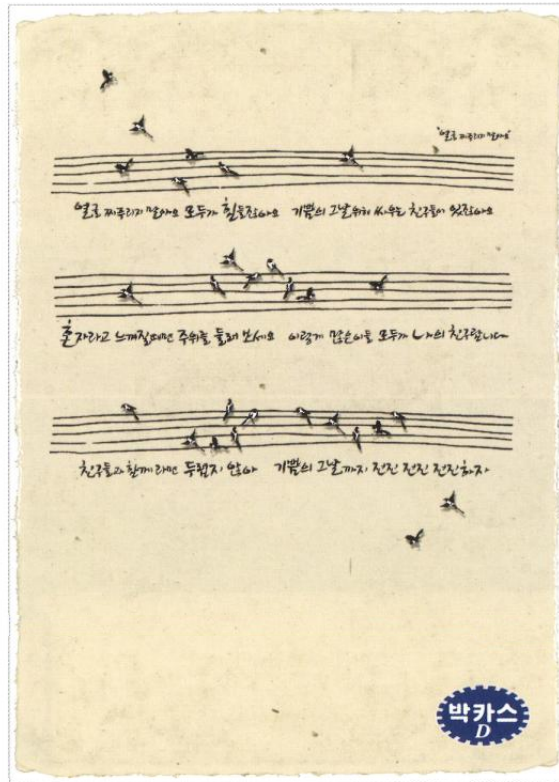 "얼굴 찌푸리지 말아요"
얼굴 찌푸리지 말아요 모두가 힘들잖아요 기쁨의 그날 위해 싸우는 친구들이 있잖아요
혼자라고 느껴질 때면 주위를 둘러 보세요 이렇게 많은 이들 모두가 나의 친구랍니다
친구들과 함께라면 두렵지 않아 기쁨의 그날까지 전진 전진 전진하자
박카스
D